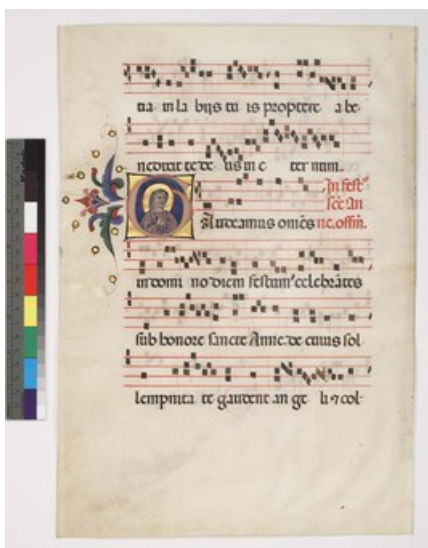 tia in la biis tu is proptere a be-
nedixit te de us in e ter num.
In festo
sce An
GAudeamus omēs ne. offm̄.
in domi no diem festum celebrātes
sub honore sancte Anne. de cuius sol
lempnita te gaudent an ge li ⁊ col-